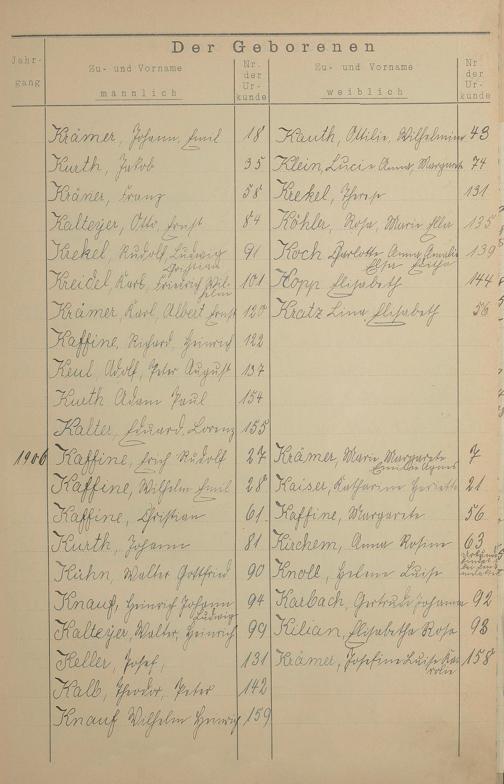 Der Geborenen
Jahr-
gang
Zu- und Vorname
männlich
Nr.
der
Ur-
kunde
Zu- und Vorname
weiblich
Nr.
der
Ur-
kunde
Krämer, Johann, Emil 18 Kauth, Ottilie, Wilhelmine 43
Kurth, Jakob 35 Klein, Lucie Anna, Margareta 74
Kräner, Franz 58 Krekel, Therese 131
Kalteyer, Otto, Ernst 84 Köhler, Rosa, Marie Ella 135
Krekel, Rudolf, Ludwig 91 Koch Charlotte Anna, Amalie 139
Christian
Kreidel, Karl, Friedrich Wil- 101 Hopp Elisabeth 144
helm
Krämer, Karl, Albert Ernst 120 Kratz Lina, Elisabeth 56
Kaffine, Richard, Heinrich 122
Keul, Adolf, Peter August 137
Kurth Adam Paul 154
Kalter, Eduard, Lorenz 155
1906 Kaffine, Erich Rudolf 27 Krämer, Marie, Margarete 7
Kaffine, Wilhelm Emil 28 Kaiser, Katharine 21
Kaffine, Christian 61 Kaffine, Margarete 56
Kurth, Johann 81 Kirchem, Anna Rosine 63
Kühn, Walter Gottfried 90 Knoll, Helene Luise
Knauf, Heinrich Johann 94 Karbach, Gertrude Johanna 92
Ludwig
Kalteyer, Walter, Heinrich 99 Kilian, Elisabetha Rosa 93
Keller, Josef, 131 Krämer, Josefine Luise 158
Kalb, Theodor, Peter 142
Knauf Wilhelm Heinrich 159